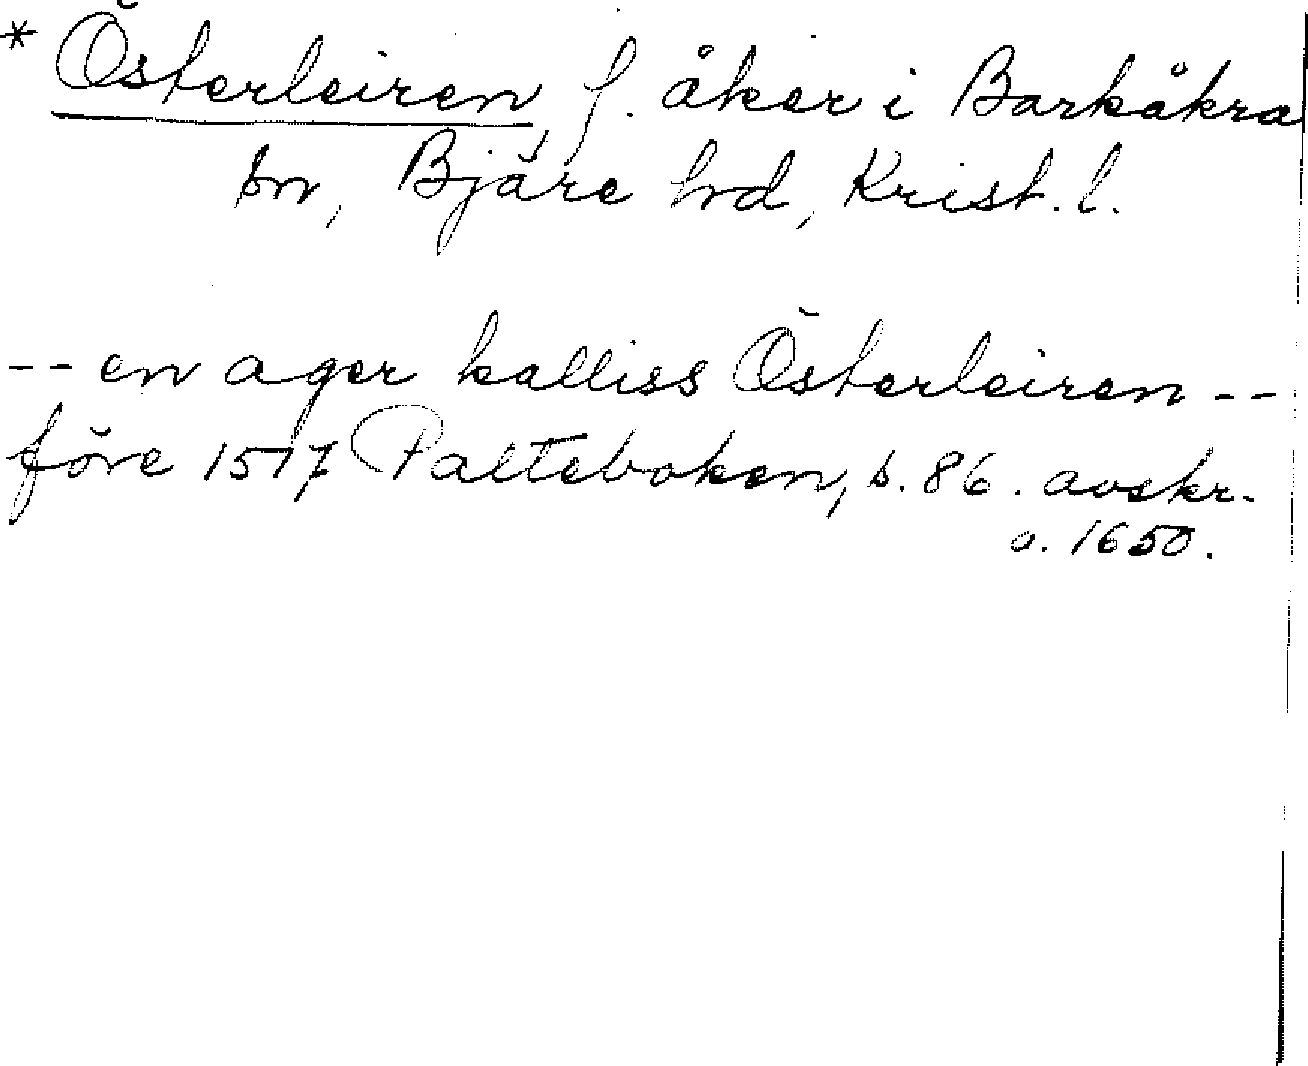 * Österleiren, f. åker i Barkåkra
sn, Bjäre hd, Krist. l.
-- en ager kalliss Österleiren --
före 1517 Palteboken, s. 86. avskr.
a. 1650.